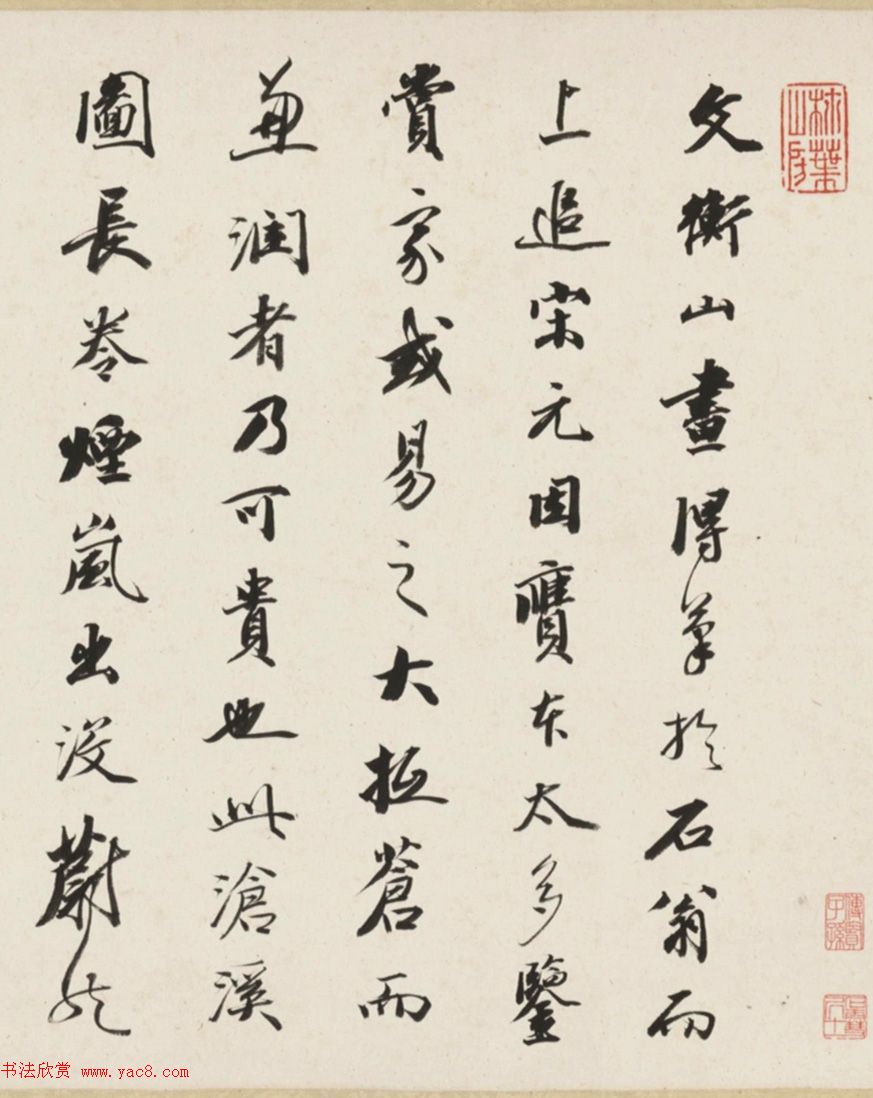 文衡山畫得筆於石翁而
上追宋元因贗本太多鑒
賞家或易之大抵蒼而
兼润者乃可貴也此滄溪
圖長卷煙嵐出没蔚然
书法欣赏 www.yac8.com